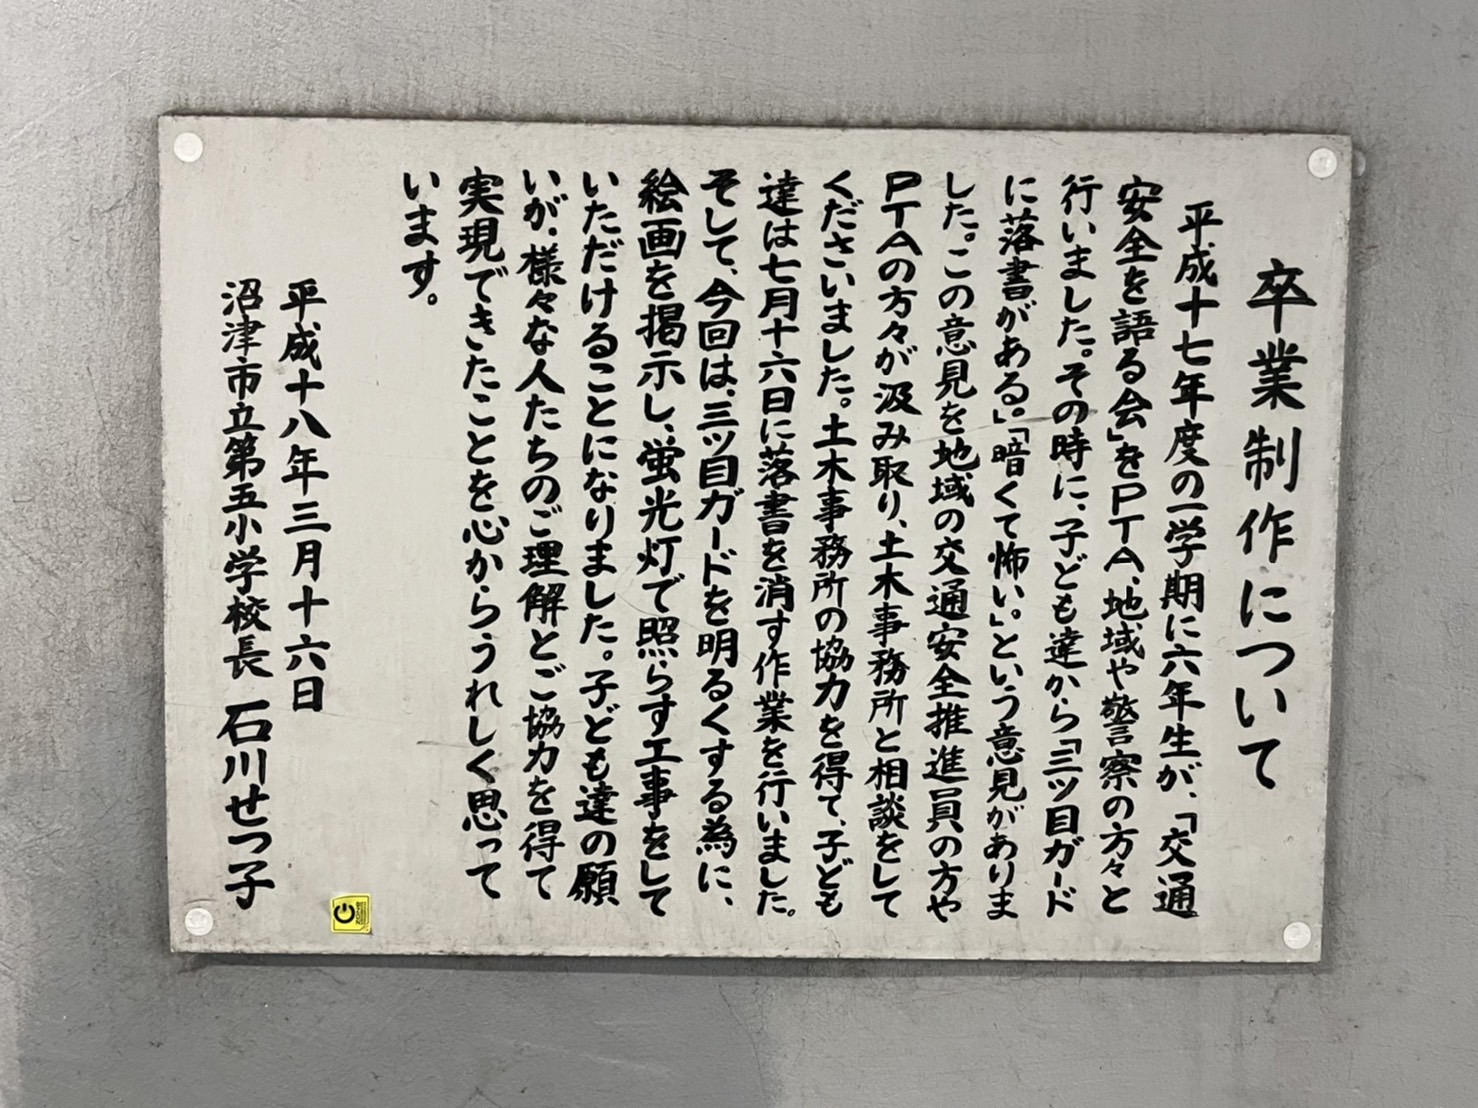 卒業制作について
平成十七年度の一学期に六年生が、「交通
安全を語る会」をPTA、地域や警察の方々と
行いました。その時に、子ども達から「三ツ目ガード
に落書がある。」「暗くて怖い。」という意見がありま
した。この意見を地域の交通安全推進員の方や
PTAの方々が汲み取り、土木事務所と相談をして
くださいました。土木事務所の協力を得て、子ども
達は七月十六日に落書を消す作業を行いました。
そして、今回は、三ツ目ガードを明るくする為に、
絵画を掲示し、蛍光灯で照らす工事をして
いただけることになりました。子ども達の願
いが、様々な人たちのご理解とご協力を得て
実現できたことを心からうれしく思って
います。
平成十八年三月十六日
沼津市立第五小学校長 石川せつ子